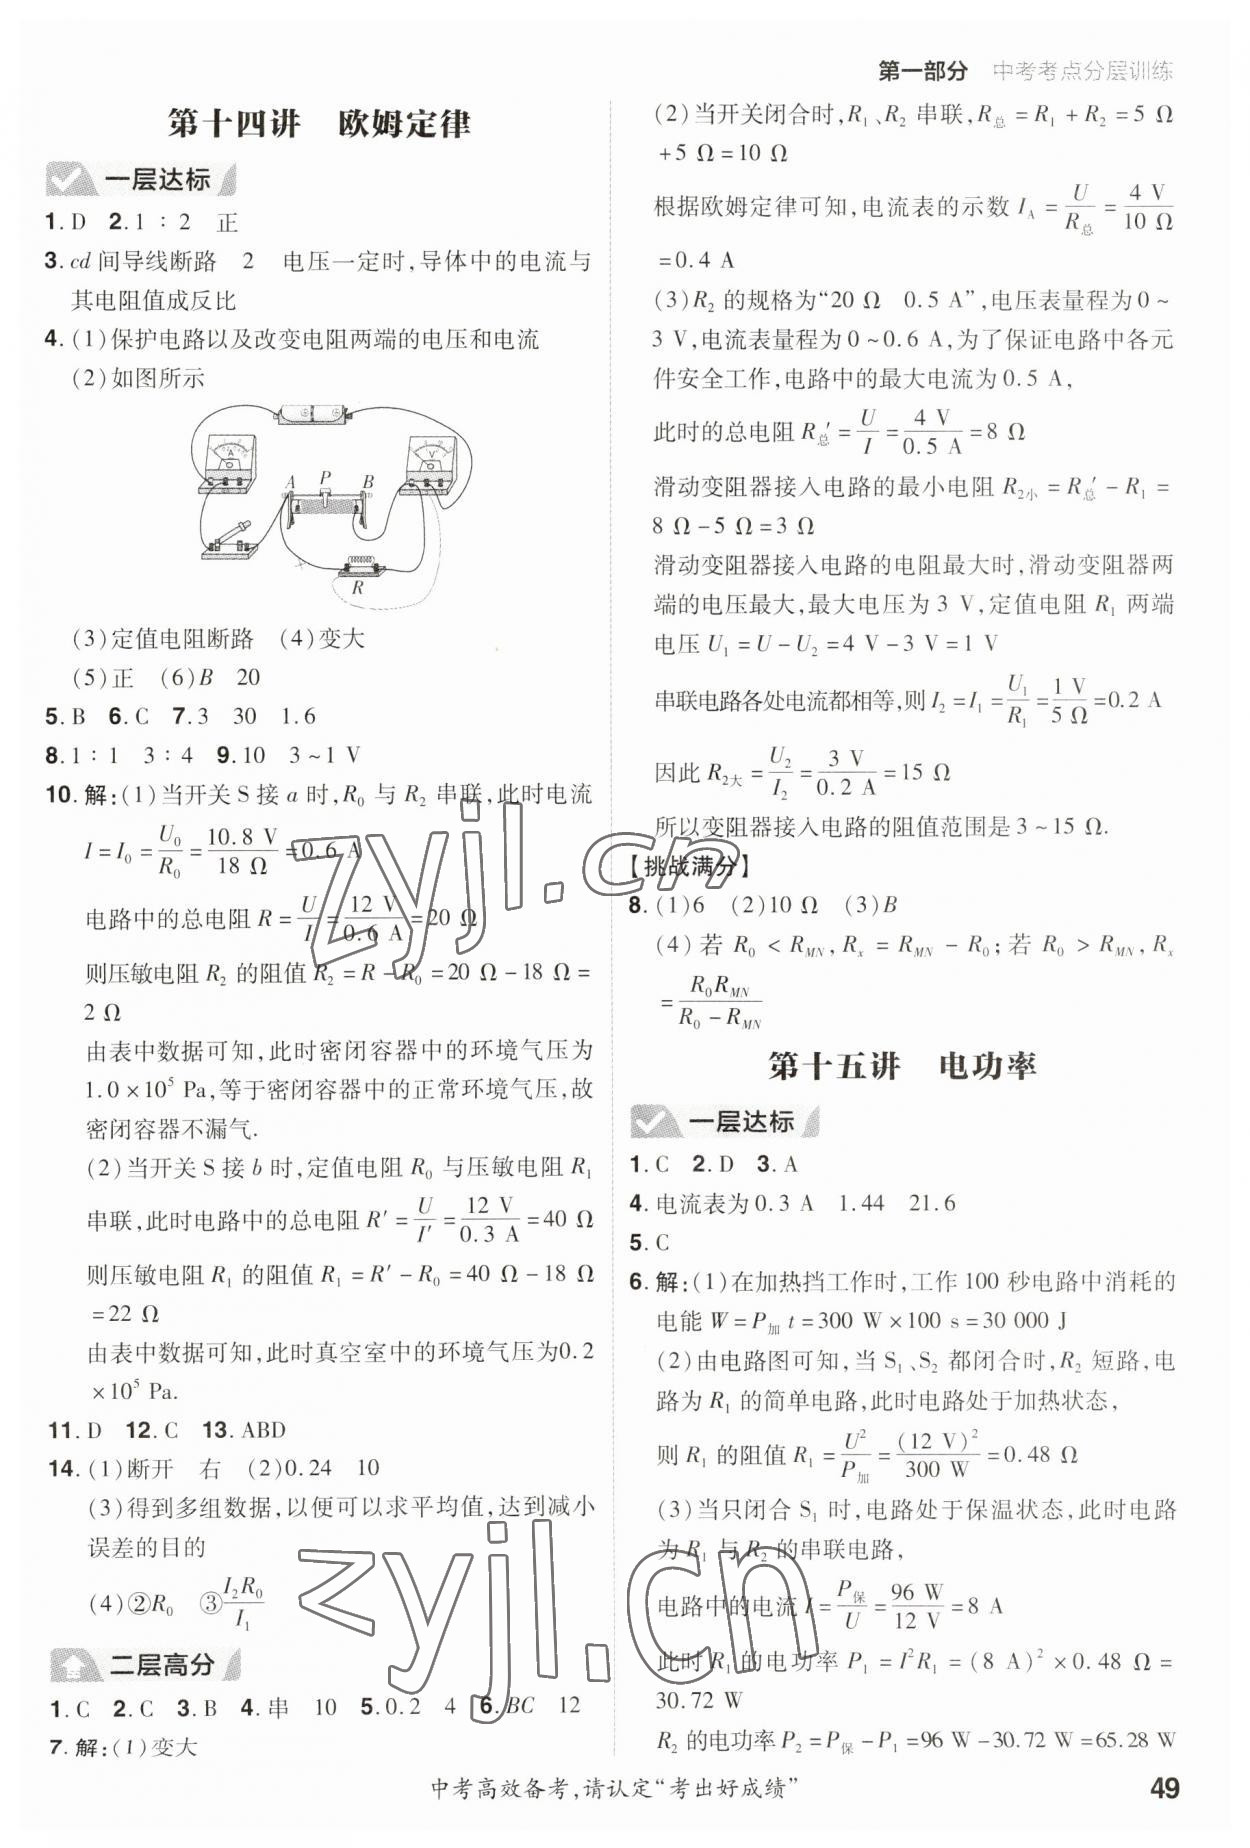 第一部分 中考考点分层训练
第十四讲 欧姆定律
一层达标
1. D 2. 1∶2 正
3. cd 间导线断路 2 电压一定时,导体中的电流与
其电阻值成反比
4. (1)保护电路以及改变电阻两端的电压和电流
(2)如图所示
A V
A P B
R
(3)定值电阻断路 (4)变大
(5)正 (6)B 20
5. B 6. C 7. 3 30 1.6
8. 1∶1 3∶4 9. 10 3~1 V
10. 解:(1)当开关 S 接 a 时,R₀ 与 R₂ 串联,此时电流
I = I₀ = U₀/R₀ = 10.8 V/18 Ω = 0.6 A
电路中的总电阻 R = U/I = 12 V/0.6 A = 20 Ω
则压敏电阻 R₂ 的阻值 R₂ = R − R₀ = 20 Ω − 18 Ω =
2 Ω
由表中数据可知,此时密闭容器中的环境气压为
1.0×10⁵ Pa,等于密闭容器中的正常环境气压,故
密闭容器不漏气.
(2)当开关 S 接 b 时,定值电阻 R₀ 与压敏电阻 R₁
串联,此时电路中的总电阻 R′ = U/I′ = 12 V/0.3 A = 40 Ω
则压敏电阻 R₁ 的阻值 R₁ = R′ − R₀ = 40 Ω − 18 Ω
= 22 Ω
由表中数据可知,此时真空室中的环境气压为0.2
×10⁵ Pa.
11. D 12. C 13. ABD
14. (1)断开 右 (2)0.24 10
(3)得到多组数据,以便可以求平均值,达到减小
误差的目的
(4)②R₀ ③I₂R₀/I₁
二层高分
1. C 2. C 3. B 4. 串 10 5. 0.2 4 6. BC 12
7. 解:(1)变大
(2)当开关闭合时,R₁、R₂ 串联,R总 = R₁ + R₂ = 5 Ω
+5 Ω = 10 Ω
根据欧姆定律可知,电流表的示数 I_A = U/R总 = 4 V/10 Ω
= 0.4 A
(3)R₂ 的规格为“20 Ω 0.5 A”,电压表量程为 0~
3 V,电流表量程为 0~0.6 A,为了保证电路中各元
件安全工作,电路中的最大电流为 0.5 A,
此时的总电阻 R总′ = U/I = 4 V/0.5 A = 8 Ω
滑动变阻器接入电路的最小电阻 R₂小 = R总′ − R₁ =
8 Ω − 5 Ω = 3 Ω
滑动变阻器接入电路的电阻最大时,滑动变阻器两
端的电压最大,最大电压为 3 V,定值电阻 R₁ 两端
电压 U₁ = U − U₂ = 4 V − 3 V = 1 V
串联电路各处电流都相等,则 I₂ = I₁ = U₁/R₁ = 1 V/5 Ω = 0.2 A
因此 R₂大 = U₂/I₂ = 3 V/0.2 A = 15 Ω
所以变阻器接入电路的阻值范围是 3~15 Ω.
【挑战满分】
8. (1)6 (2)10 Ω (3)B
(4)若 R₀ < R_MN, Rₓ = R_MN − R₀;若 R₀ > R_MN, Rₓ
= R₀R_MN/(R₀ − R_MN)
第十五讲 电功率
一层达标
1. C 2. D 3. A
4. 电流表为 0.3 A 1.44 21.6
5. C
6. 解:(1)在加热挡工作时,工作 100 秒电路中消耗的
电能 W = P加 t = 300 W × 100 s = 30 000 J
(2)由电路图可知,当 S₁、S₂ 都闭合时,R₂ 短路,电
路为 R₁ 的简单电路,此时电路处于加热状态,
则 R₁ 的阻值 R₁ = U²/P加 = (12 V)²/300 W = 0.48 Ω
(3)当只闭合 S₁ 时,电路处于保温状态,此时电路
为 R₁ 与 R₂ 的串联电路,
电路中的电流 I = P保/U = 96 W/12 V = 8 A
此时 R₁ 的电功率 P₁ = I²R₁ = (8 A)² × 0.48 Ω =
30.72 W
R₂ 的电功率 P₂ = P保 − P₁ = 96 W − 30.72 W = 65.28 W
中考高效备考,请认定“考出好成绩”
49
zyjl.cn
zyjl.cn